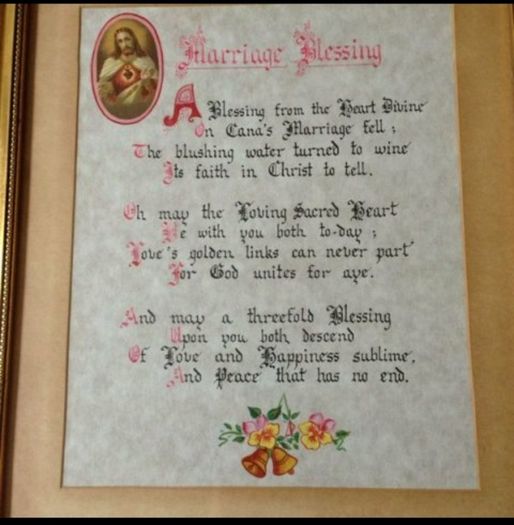 Marriage Blessing
A Blessing from the Heart Divine
On Cana's Marriage fell ;
The blushing water turned to wine
Its faith in Christ to tell.
Oh may the Loving Sacred Heart
Be with you both to-day ;
Love's golden links can never part
For God unites for aye.
And may a threefold Blessing
Upon you both descend
Of Love and Happiness sublime,
And Peace that has no end.